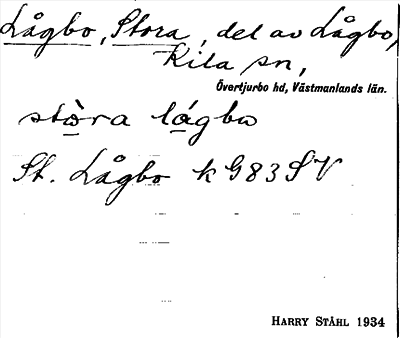 Lågbo, Stora, del av Lågbo,
Kila sn,
Övertjurbo hd, Västmanlands län.
stòra lágbω
St. Lågbo k G83SV
HARRY STÅHL 1934